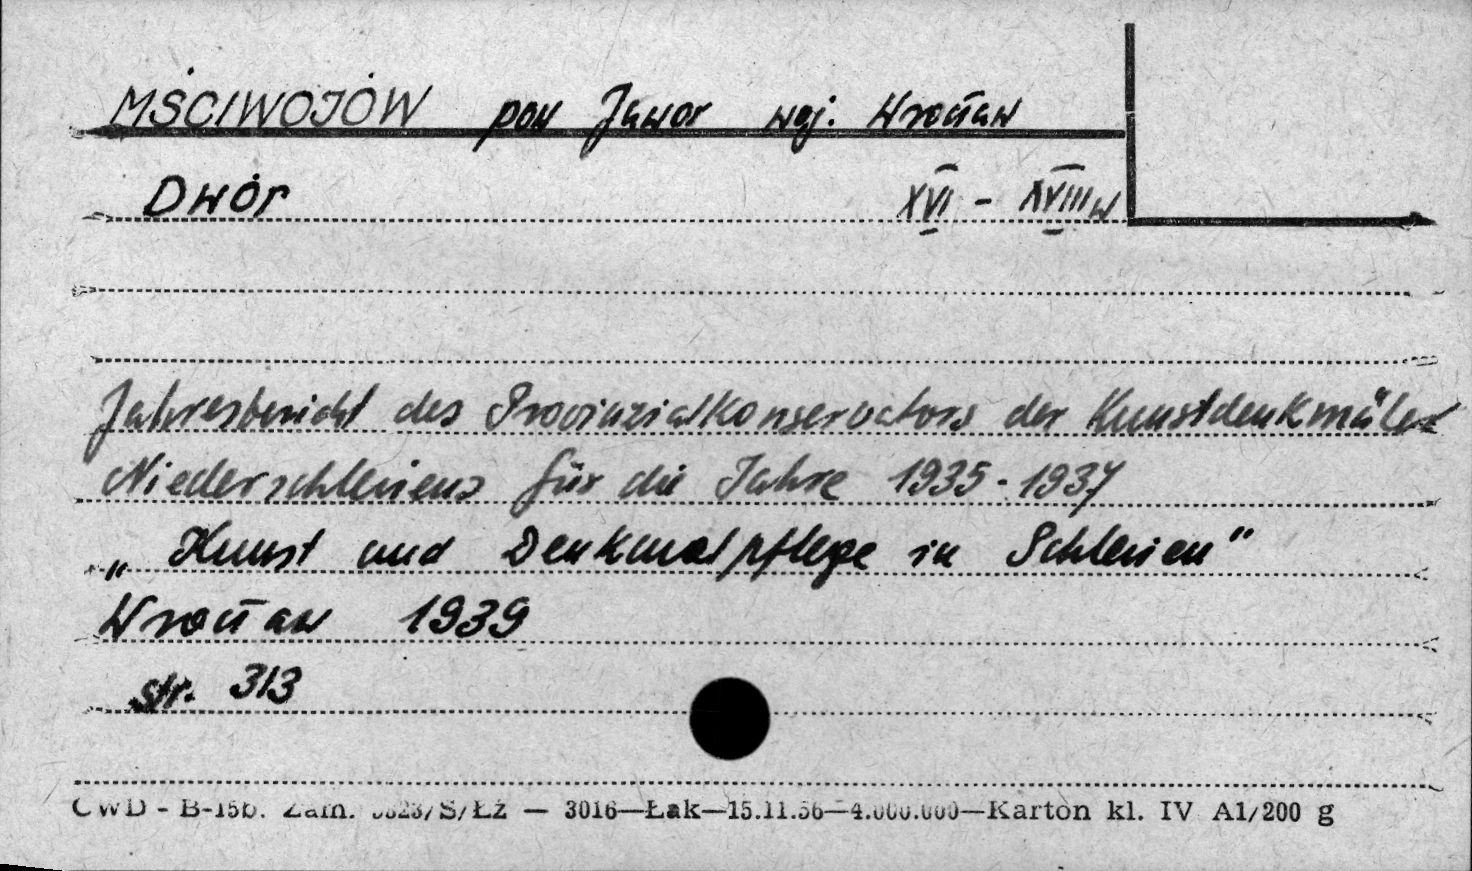 MŚCIWOJÓW pow Jawor woj. Wrocław
Dwór XVI - XVIII w
Jahresbericht des Provinzialkonservators der Kunstdenkmäler
Niederschlesiens für die Jahre 1935-1937
„Kunst und Denkmalpflege in Schlesien"
Wrocław 1939
str. 313
CWD - B-15b. Zam. 0823/S/Łż — 3016—Łak—15.11.56—4.000.000—Karton kl. IV A1/200 g